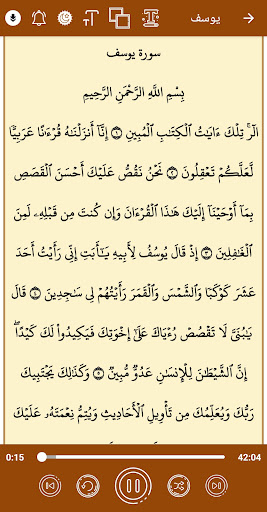 يوسف
سورة يوسف
بِسْمِ اللَّهِ الرَّحْمَٰنِ الرَّحِيمِ
الٓرۚ تِلْكَ ءَايَٰتُ ٱلْكِتَٰبِ ٱلْمُبِينِ ١ إِنَّآ أَنزَلْنَٰهُ قُرْءَٰنًا عَرَبِيًّا
لَّعَلَّكُمْ تَعْقِلُونَ ٢ نَحْنُ نَقُصُّ عَلَيْكَ أَحْسَنَ ٱلْقَصَصِ
بِمَآ أَوْحَيْنَآ إِلَيْكَ هَٰذَا ٱلْقُرْءَانَ وَإِن كُنتَ مِن قَبْلِهِۦ لَمِنَ
ٱلْغَٰفِلِينَ ٣ إِذْ قَالَ يُوسُفُ لِأَبِيهِ يَٰٓأَبَتِ إِنِّى رَأَيْتُ أَحَدَ
عَشَرَ كَوْكَبًا وَٱلشَّمْسَ وَٱلْقَمَرَ رَأَيْتُهُمْ لِى سَٰجِدِينَ ٤ قَالَ
يَٰبُنَىَّ لَا تَقْصُصْ رُءْيَاكَ عَلَىٰٓ إِخْوَتِكَ فَيَكِيدُوا۟ لَكَ كَيْدًاۖ
إِنَّ ٱلشَّيْطَٰنَ لِلْإِنسَٰنِ عَدُوٌّ مُّبِينٌ ٥ وَكَذَٰلِكَ يَجْتَبِيكَ
رَبُّكَ وَيُعَلِّمُكَ مِن تَأْوِيلِ ٱلْأَحَادِيثِ وَيُتِمُّ نِعْمَتَهُۥ عَلَيْكَ
0:15 42:04